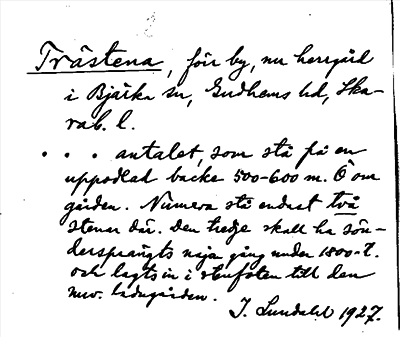 Trästena, förr by, nu herrgård
i Bjärka sn, Gudhems hd, Ska-
rab. l.
. . . antalet, som stå på en
uppodlad backe 500-600 m. Ö om
gården. Numera stå endast två
stenar där. Den tredje skall ha sön-
dersprängts någon gång under 1800-t.
och lagts in i stenfoten till den
nuv. ladugården.
J. Lundahl 1927.